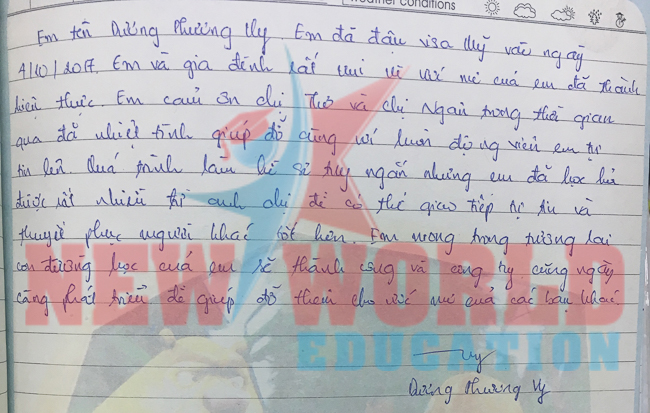 Weather conditions
Em tên Dương Phương Vy. Em đã đậu visa Mỹ vào ngày
4/10/2017. Em và gia đình rất vui vì ước mơ của em đã thành
hiện thực. Em cảm ơn chị Thơ và chị Ngân trong thời gian
qua đã nhiệt tình giúp đỡ cũng như luôn động viên em tự
tin lên. Quá trình làm hồ sơ tuy ngắn nhưng em đã học hỏi
được rất nhiều từ anh chị để có thể giao tiếp tự tin và
thuyết phục người khác tốt hơn. Em mong trong tương lai
con đường học của em sẽ thành công và công ty cũng ngày
càng phát triển để giúp đỡ thêm cho ước mơ của các bạn khác.
NEW WORLD
EDUCATION
Vy
Dương Phương Vy